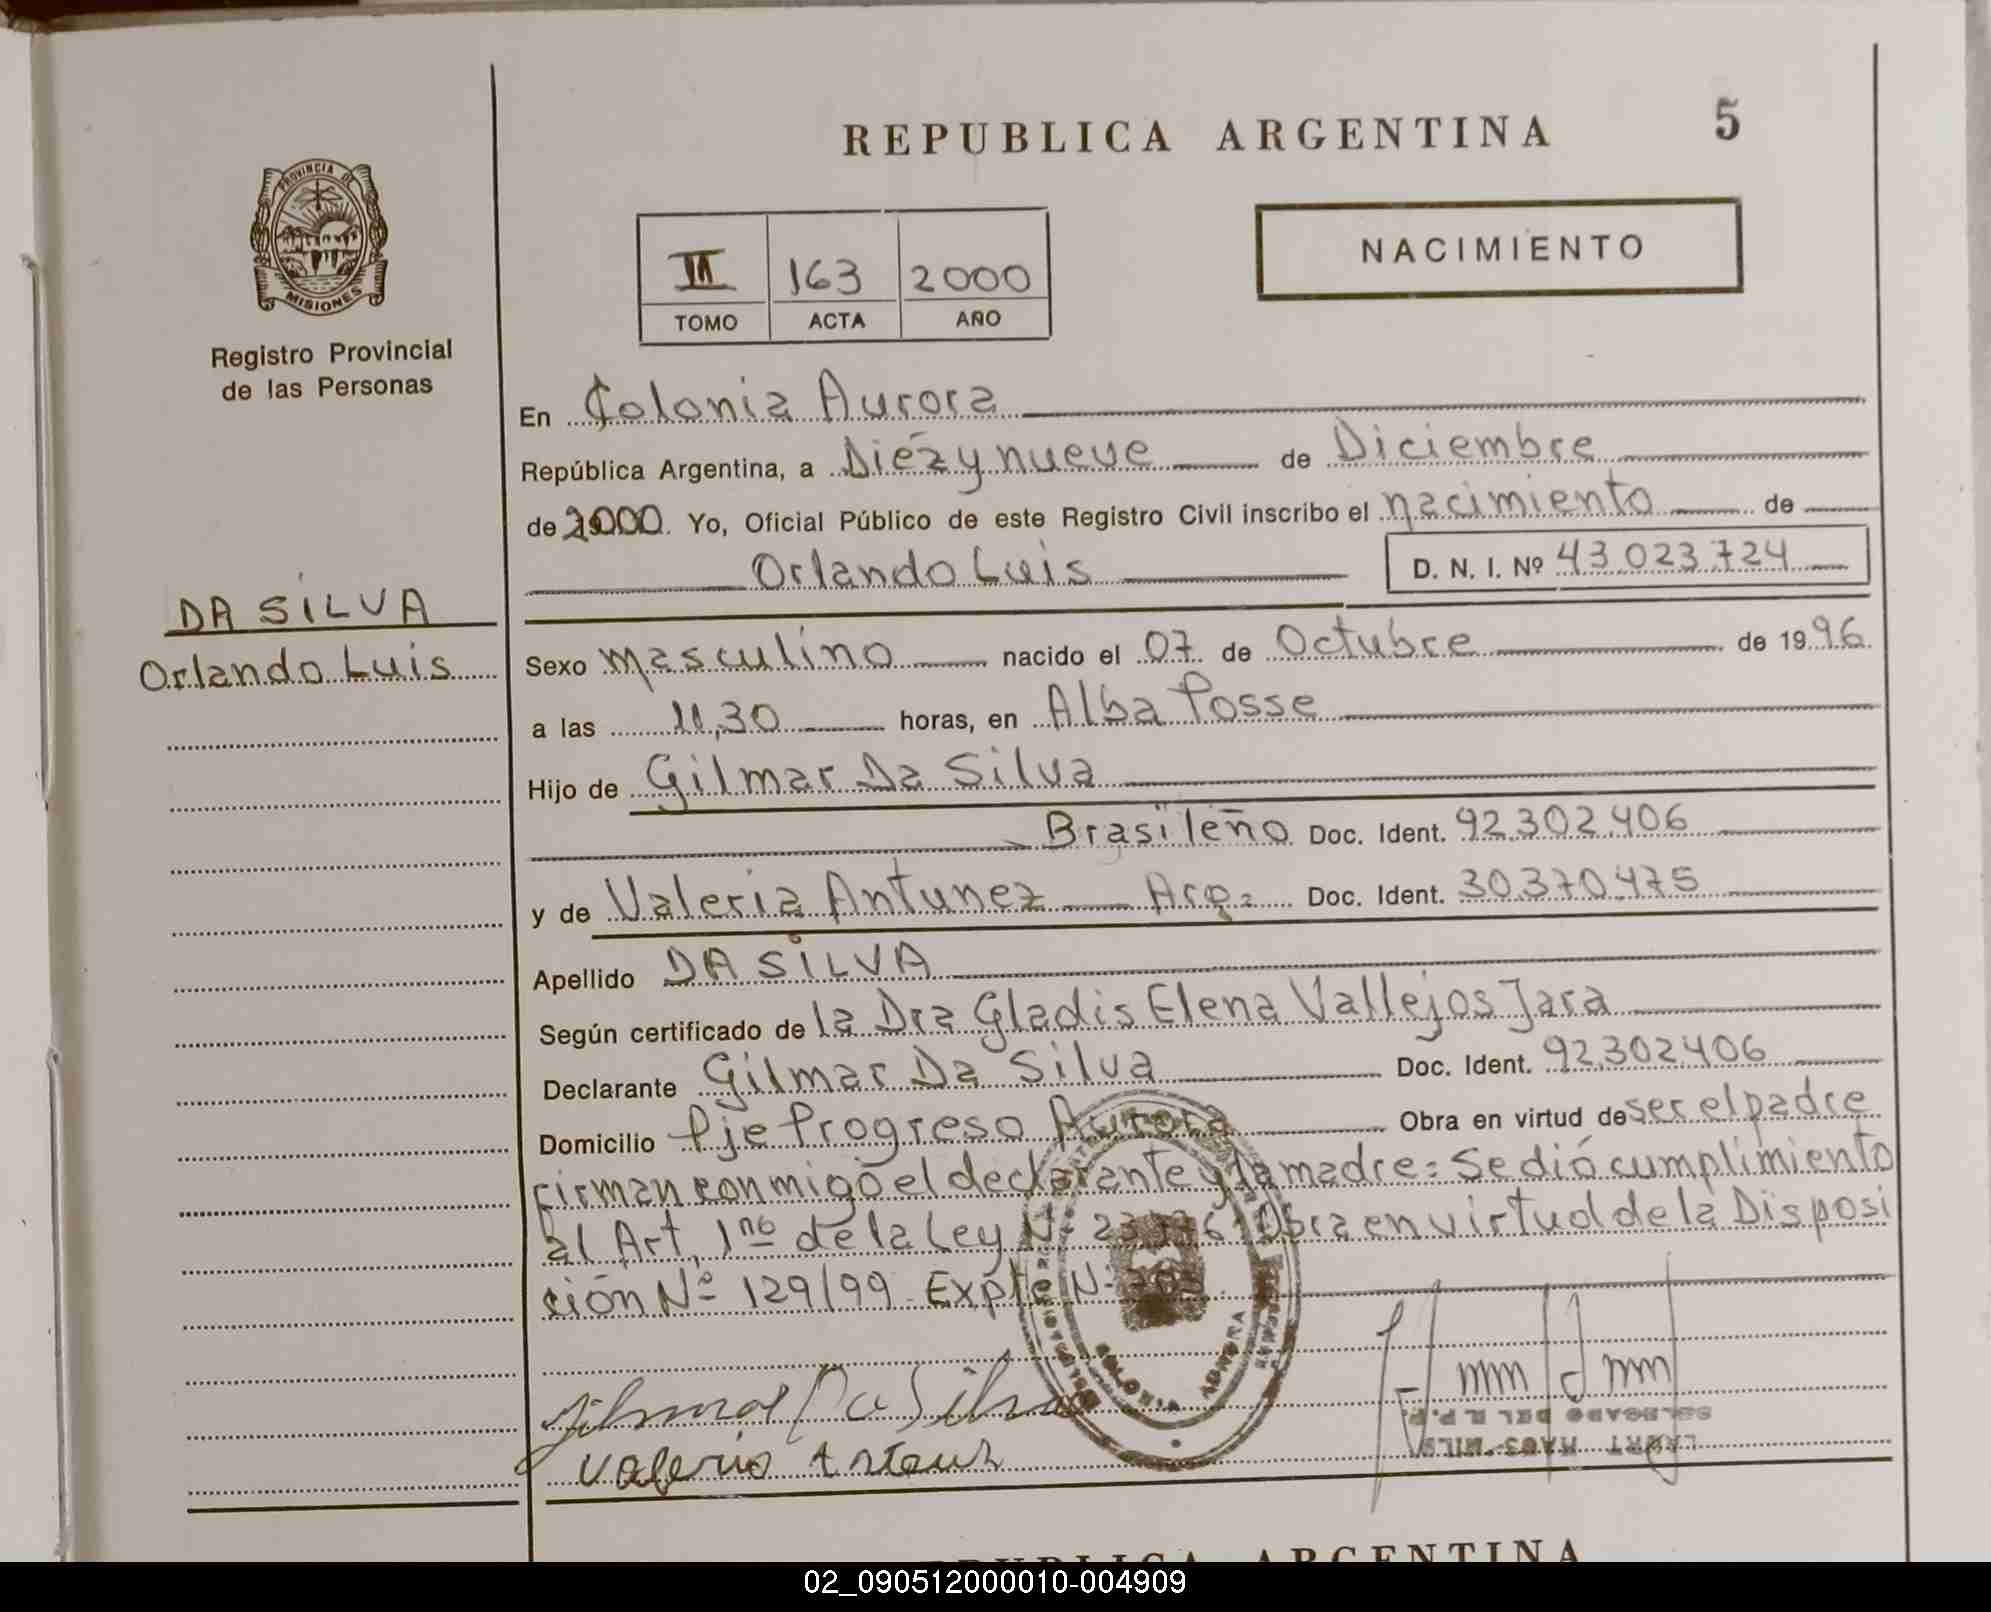 REPUBLICA ARGENTINA 5
PROVINCIA DE
MISIONES
Registro Provincial
de las Personas
II 163 2000
TOMO ACTA AÑO
NACIMIENTO
En Colonia Aurora
República Argentina, a Diézy nueve de Diciembre
de 2000. Yo, Oficial Público de este Registro Civil inscribo el nacimiento de
Orlando Luis D. N. I. Nº 43.023.724
DA SILVA
Orlando Luis
Sexo masculino nacido el 07 de Octubre de 1996
a las 11,30 horas, en Alba Posse
Hijo de Gilmar Da Silva
Brasileño Doc. Ident. 92.302.406
y de Valeria Antunez Arg= Doc. Ident. 30.370.475
Apellido DA SILVA
Según certificado de la Dra Gladis Elena Vallejos Jara
Declarante Gilmar Da Silva Doc. Ident. 92.302406
Domicilio Pje Progreso Aurora Obra en virtud de ser el padre
firman conmigo el declarante y la madre= Se dió cumplimiento
al Art. 1no de la Ley Nº Obra en virtud de la Disposi
ción Nº 129/99. Expte Nº
Gilmar Da Silva
Valeria
COLONIA AURORA
DELEGADO DEL R.P.P.
REPUBLICA ARGENTINA
02_090512000010-004909